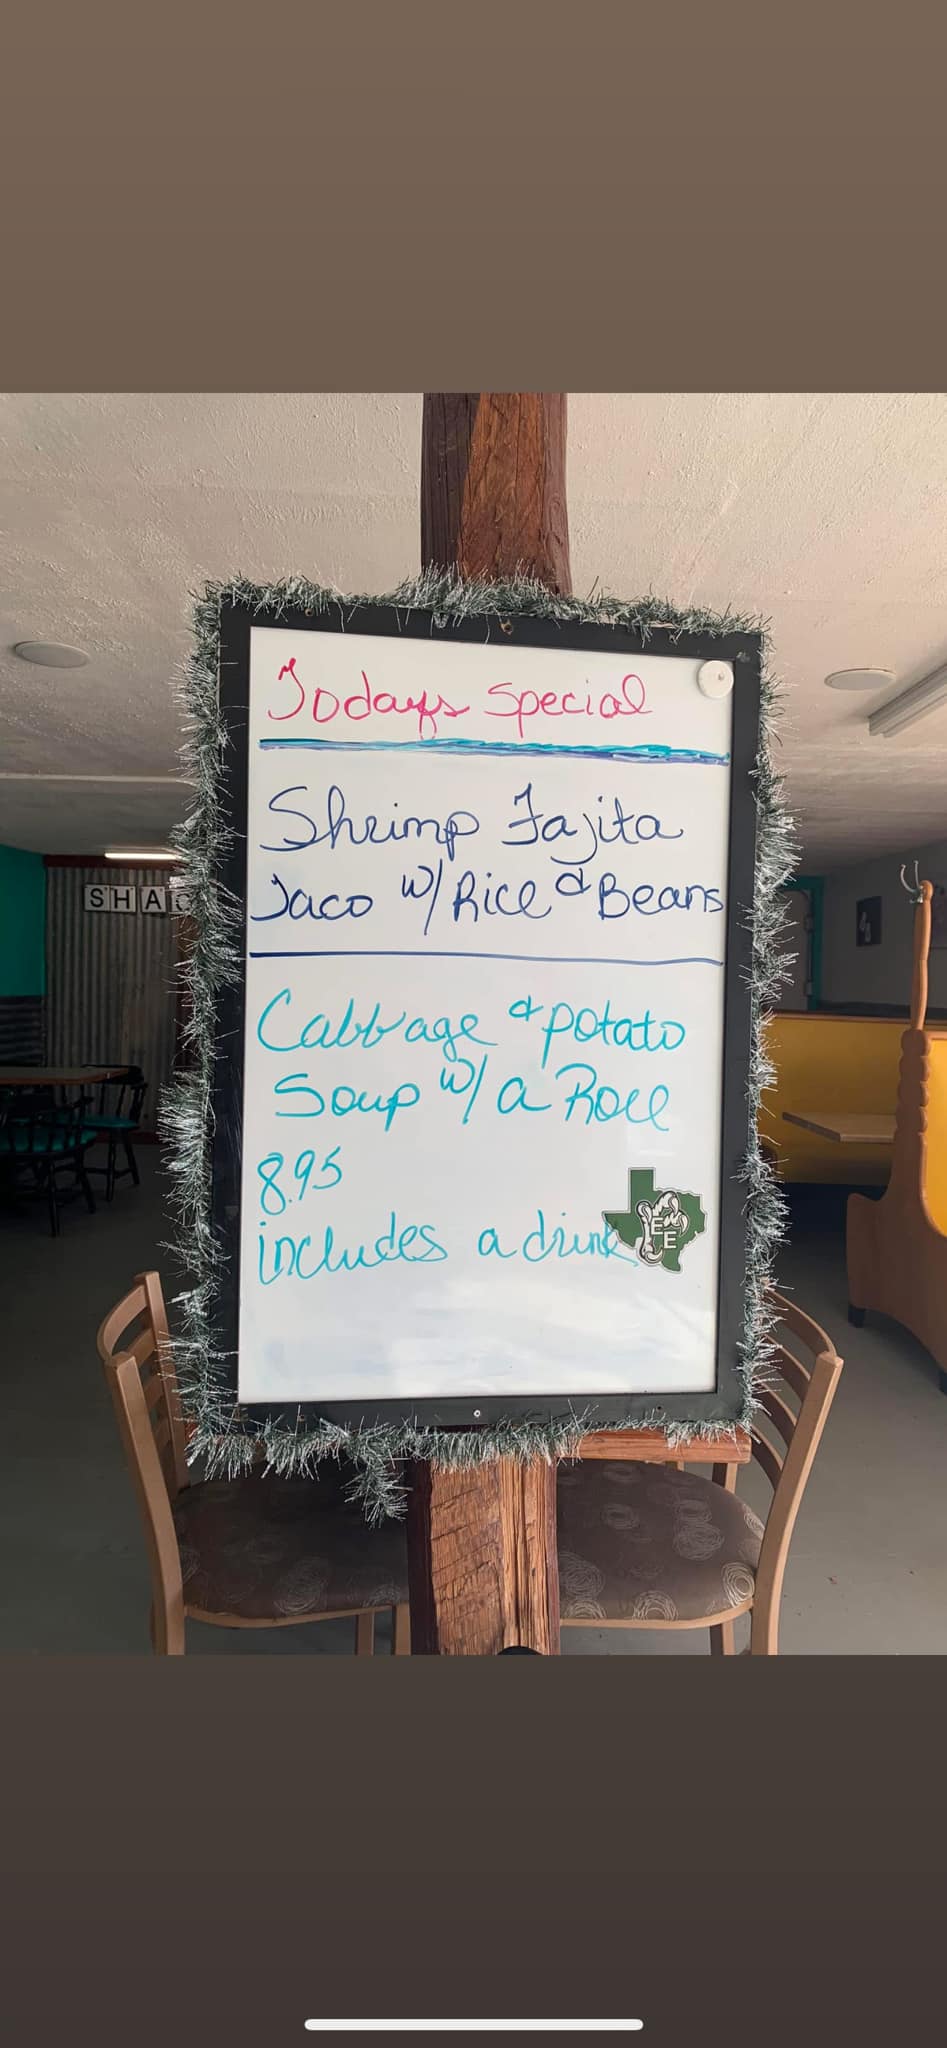 Todays Special
Shrimp Fajita
Taco w/ Rice & Beans
Cabbage & potato
Soup w/ a Roll
8.95
includes a drink
SHAC
E
E